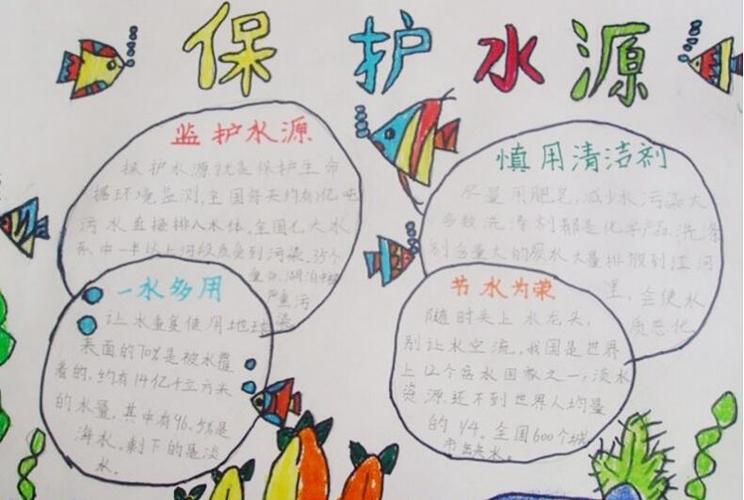 保护水源
监护水源
保护水源就是保护生命
据环境监测,全国每天约有1亿吨
污水直接排入水体,全国七大水
系中一半以上河段水质受到污染,35个
重点湖泊中
严重污
染
慎用清洁剂
尽量用肥皂,减少水污染大
多数洗涤剂都是化学产品,洗涤
剂含量大的废水大量排放到江河
里,会使水
质恶化
一水多用
让水重复使用地球
表面的70%是被水覆
着的,约有14亿千立方米
的水量,其中有96.5%是
海水。剩下的是淡
水。
节水为荣
随时关上水龙头,
别让水空流,我国是世界
上12个贫水国家之一,淡水
资源还不到世界人均量
的1/4。全国600个城
市
水。